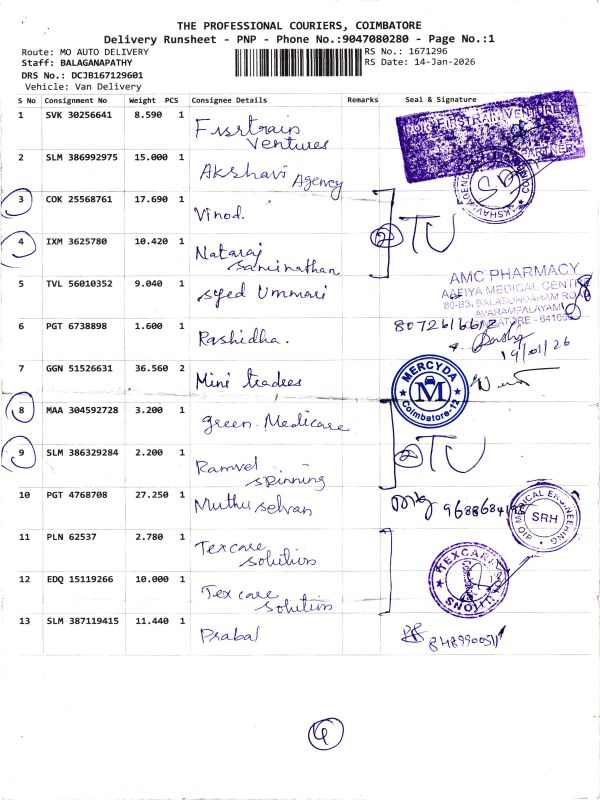 THE PROFESSIONAL COURIERS, COIMBATORE
Delivery Runsheet - PNP - Phone No.:9047080280 - Page No.:1
Route: MO AUTO DELIVERY
RS No.: 1671296
Staff: BALAGANAPATHY
RS Date: 14-Jan-2026
DRS No.: DCJB167129601
Vehicle: Van Delivery
S No Consignment No Weight PCS Consignee Details Remarks Seal & Signature
1 SVK 30256641 8.590 1 Firstrain
Ventures
2 SLM 386992975 15.000 1 Akshavi Agency
3 COK 25568761 17.690 1 Vinod.
4 IXM 3625780 10.420 1 Nataraj
Saminathan
2 TU
5 TVL 56010352 9.040 1 Syed Ummar
AMC PHARMACY
AAFIYA MEDICAL CENT
80-83, BALASUNDARAM RO
AVARAMPALAYAM
6 PGT 6738898 1.600 1 Rashidha.
14/01/26
7 GGN 51526631 36.560 2 Mini tradees
MERCYDA
M
Coimbatore-12
8 MAA 304592728 3.200 1 green. Medicare
9 SLM 386329284 2.200 1 Ramvel
Spinning
2 TU
10 PGT 4768708 27.250 1 Muthu selvan
MEDICAL ENGINEERING
SRH
11 PLN 62537 2.780 1 Texcare
Solutions
TEXCARE
12 EDQ 15119266 10.000 1 Tex care
Solution
13 SLM 387119415 11.440 1 Prabal